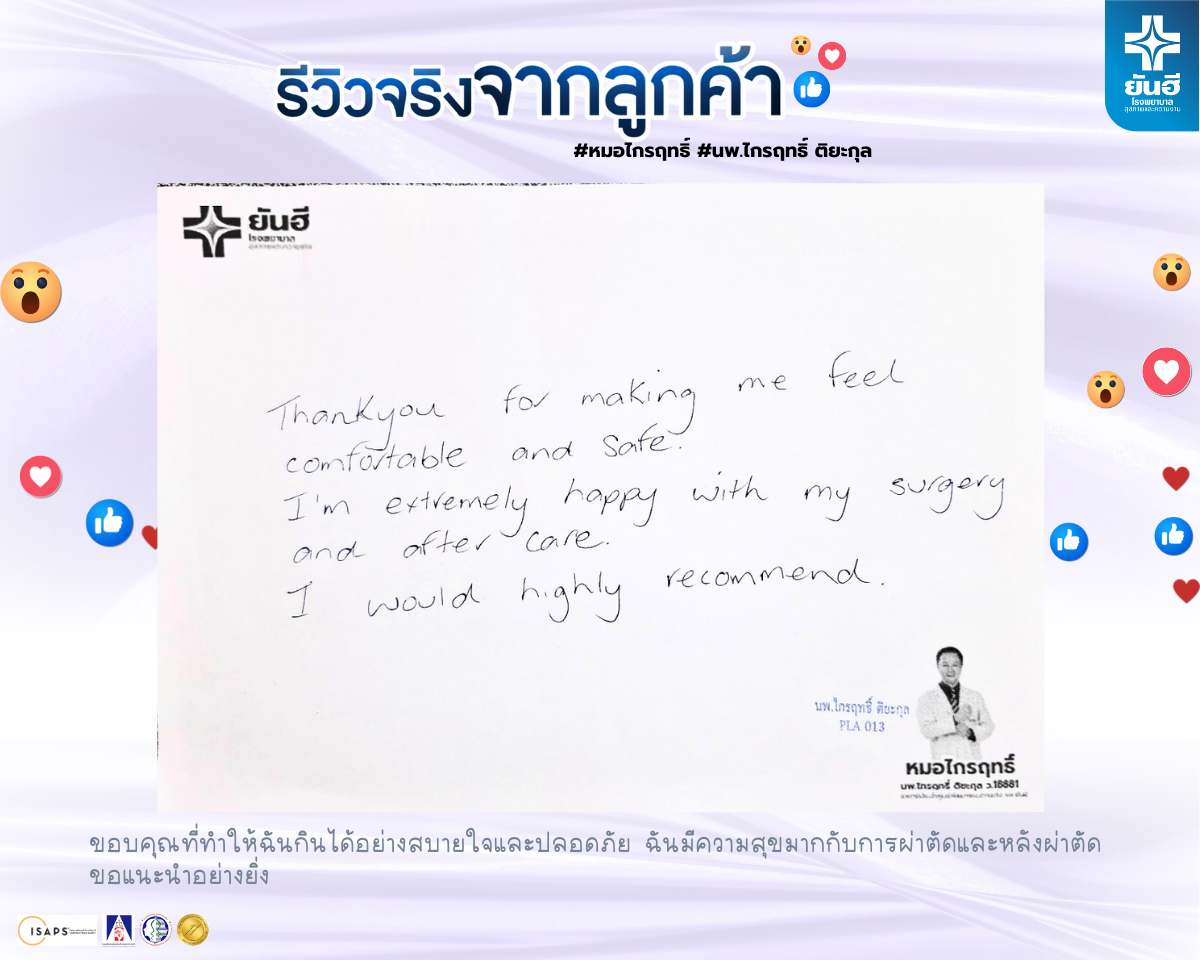 รีวิวจริงจากลูกค้า
#หมอไกรฤทธิ์ #นพ.ไกรฤทธิ์ ติยะกุล
ยันฮี
โรงพยาบาล
สุขภาพและความงาม
ยันฮี
โรงพยาบาล
สุขภาพและความงาม
Thankyou for making me feel
comfortable and safe.
I'm extremely happy with my surgery
and after care.
I would highly recommend.
นพ.ไกรฤทธิ์ ติยะกุล
PLA 013
หมอไกรฤทธิ์
นพ.ไกรฤทธิ์ ติยะกุล ว.18881
ขอบคุณที่ทำให้ฉันกินได้อย่างสบายใจและปลอดภัย ฉันมีความสุขมากกับการผ่าตัดและหลังผ่าตัด
ขอแนะนำอย่างยิ่ง
ISAPS